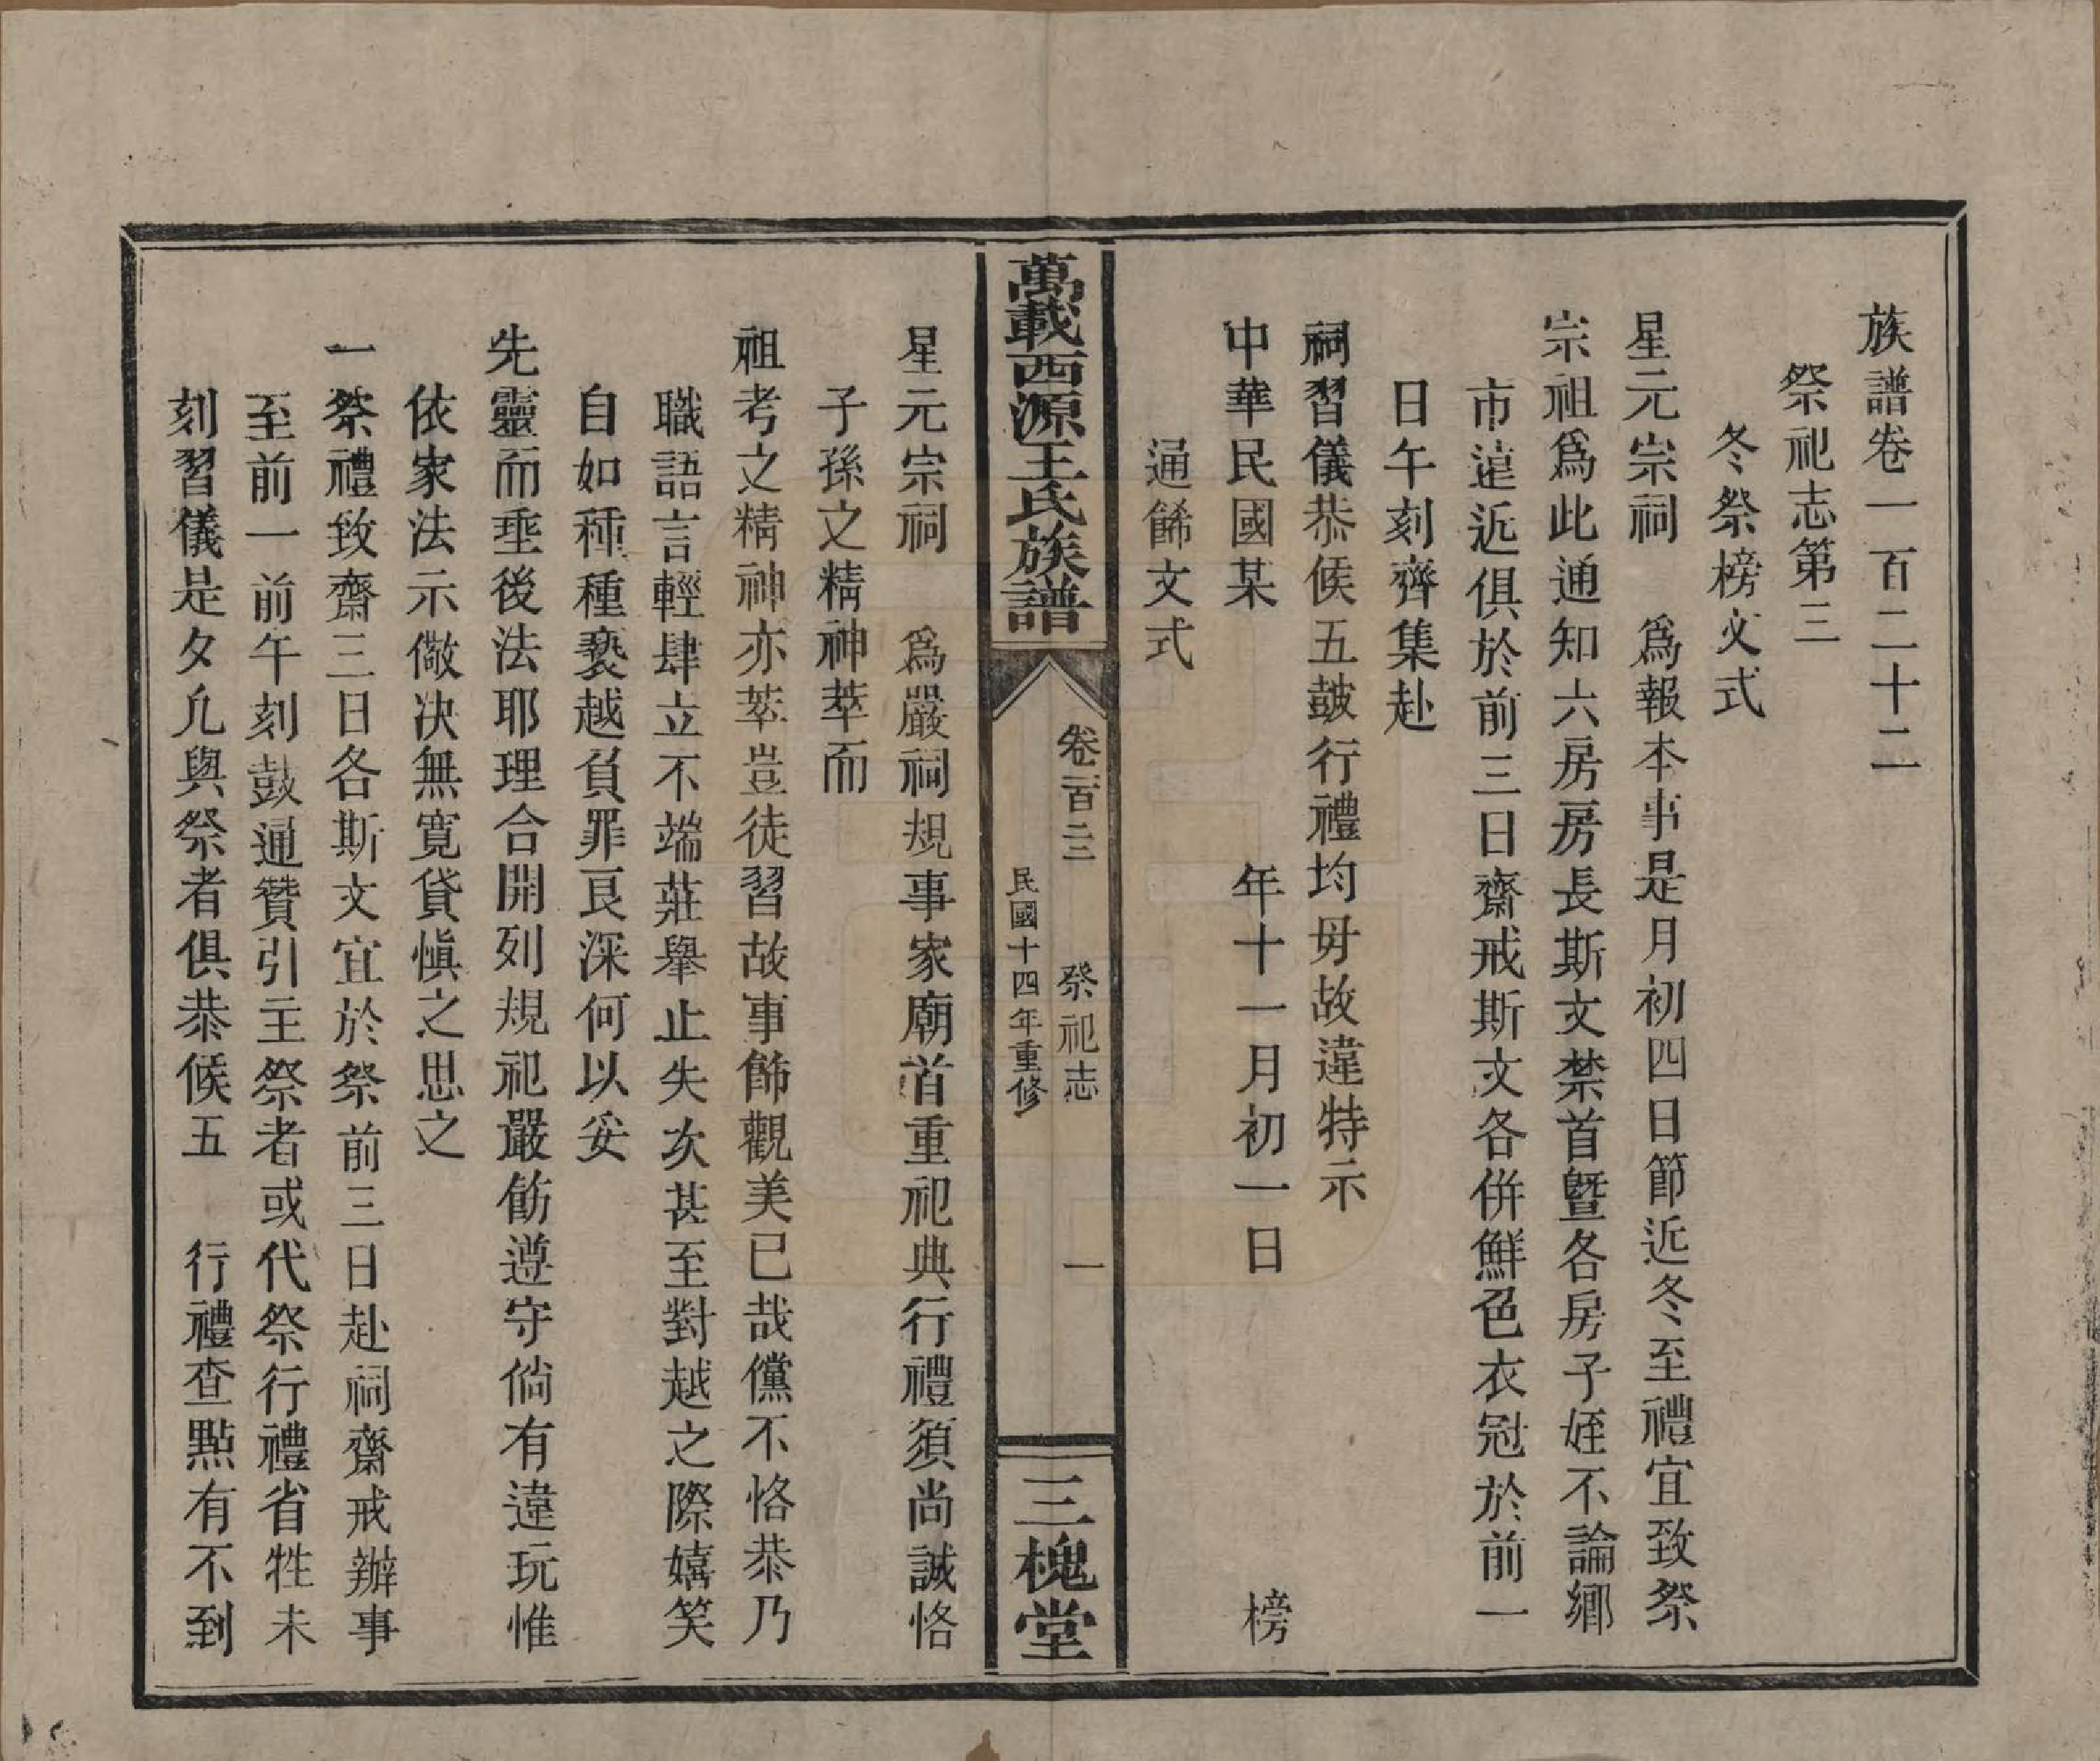 族譜卷一百二十二
祭祀志第三
冬祭榜文式
星元宗祠　爲報本事是月初四日節近冬至禮宜致祭
宗祖爲此通知六房房長斯文禁首曁各房子姪不論鄉
市遠近俱於前三日齋戒斯文各併鮮色衣冠於前一
日午刻齊集赴
祠習儀恭候五皷行禮均毋故違特示
中華民國某　　　　年十一月初一日　　　　　榜
通餙文式
萬載西源王氏族譜
卷一百二十二　祭祀志　一
民國十四年重修
三槐堂
星元宗祠　爲嚴祠規事家廟首重祀典行禮須尚誠恪
子孫之精神萃而
祖考之精神亦萃豈徒習故事飾觀美已哉儻不恪恭乃
職語言輕肆立不端莊舉止失次甚至對越之際嬉笑
自如種種褻越負罪良深何以妥
先靈而垂後法耶理合開列規祀嚴飭遵守倘有違玩惟
依家法示儆决無寬貸愼之思之
一祭禮致齋三日各斯文宜於祭前三日赴祠齋戒辦事
至前一前午刻鼓通贊引主祭者或代祭行禮省牲未
刻習儀是夕凡與祭者俱恭候五　行禮查點有不到